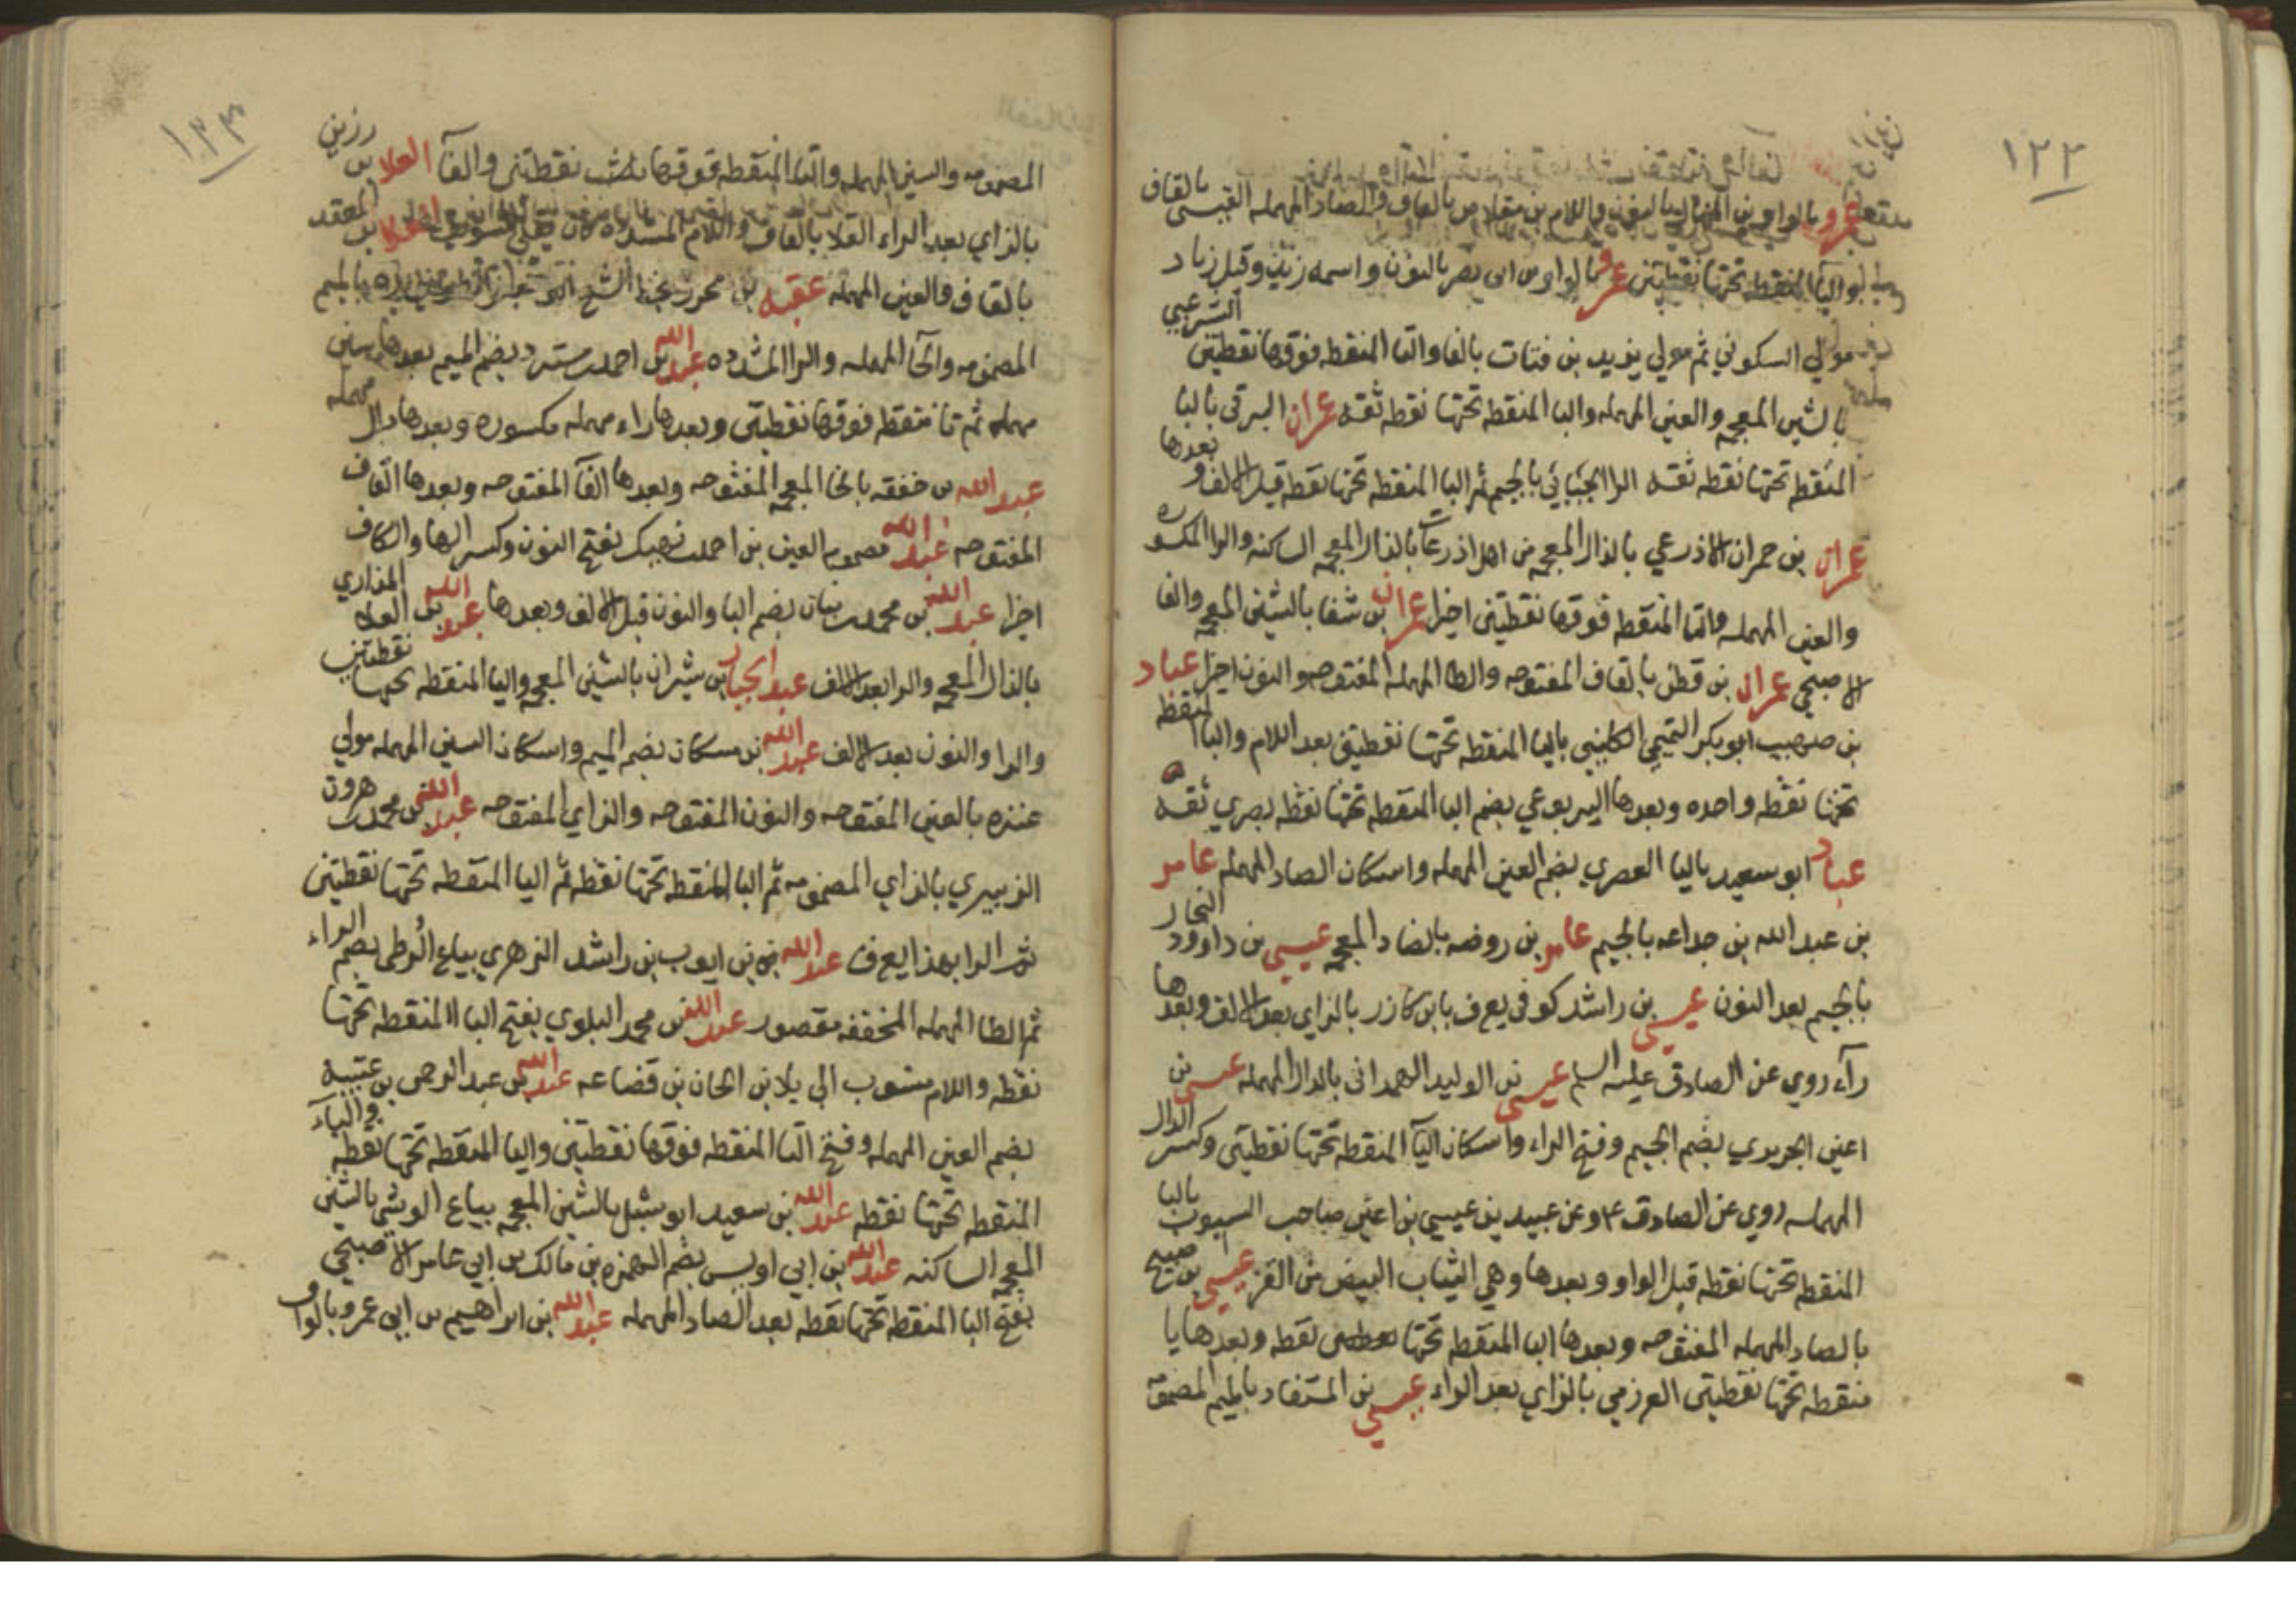 ١٢٣
عمرو بالواو بن المنهال بالنون واللام بن مقلاص بالقاف والصاد المهمله القيسى بالقاف
واليا المنقطه تحتها نقطتين عمرو بالواو بن ابى نصر بالنون واسمه زيد وقيل زياد
مولي السكوني ثم مولي يزيد بن فتات بالفا والتا المنقطه فوقها نقطتين الشرعبي
بالشين المعجمه والعين المهمله والبا المنقطه تحتها نقطه ثقه عمران البرقى بالبا
المنقطه تحتها نقطه ثقه الجبائي بالجيم ثم البا المنقطه تحتها نقطه قبل الالف و بعدها
عمران بن حمران الاذرعي بالذال المعجمه من اهل اذرعات بالذال المعجمه الساكنه والرا المكسوره
والعين المهمله والتا المنقطه فوقها نقطتين اخيرا عمران بن شفا بالشين المعجمه والفا
الاصبحي عمران بن قطن بالقاف المفتوحه والطا المهمله المفتوحه والنون اخيرا عباد
بن صهيب ابو بكر التميمي الكليبي باليا المنقطه تحتها نقطتين بعد اللام والبا المنقطه
تحتها نقطه واحده وبعدها اليربوعي بضم البا المنقطه تحتها نقطه بصري ثقه
عباد ابو سعيد باليا العصري بضم العين المهمله واسكان الصاد المهمله عامر
بن عبد الله بن جداعه بالجيم عامر بن روضه بالضاد المعجمه عيسى بن داوود النجار
بالجيم بعد النون عيسى بن راشد كوفى يعرف بابن كازر بالزاي بعد الالف وبعدها
رآء روي عن الصادق عليه السلم عيسى بن الوليد الهمدانى بالدال المهمله عيسى بن
اعين الجريري بضم الجيم وفتح الراء واسكان اليآ المنقطه تحتها نقطتين وكسر الدال
المهمله روي عن الصادق ع وعن عبيد بن عيسي بن اعين صاحب السبوب بالبا
المنقطه تحتها نقطه قبل الواو وبعدها وهي الثياب البيض من القز عيسى بن صبيح
بالصاد المهمله المفتوحه وبعدها البا المنقطه تحتها نقطه وبعدها يا
منقطه تحتها نقطتين العرزمي بالزاي بعد الراء عيسى بن المستفاد بالميم المضمومه
١٢٤
المضمومه والسين المهمله والتا المنقطه فوقها نقطتين والفآ العلا بن رزين
بالزاي بعد الراء القلا بالقاف واللام المشدده كان يقلى السويق العلا بن المقعد
بالقاف والعين المهمله عقبه بن محرز بالميم
المضمومه والحآ المهمله والرا المشدده عبد الله بن احمد بن مسترد بضم الميم بعدها سين
مهمله ثم تا منقطه فوقها نقطتين وبعدها راء مهمله مكسوره وبعدها دال مهمله
عبد الله بن خفقه بالخا المعجمه المفتوحه وبعدها الفآ المفتوحه وبعدها القاف
المفتوحه عبد الله مضموم العين بن احمد بن نهيك بفتح النون وكسر الها والكاف
اخيرا عبد الله بن محمد بن بنان بضم البا والنون قبل الالف وبعدها عبد الله بن العلا المذاري
بالذال المعجمه والرا بعد الالف عبد الجبار بن شيران بالشين المعجمه واليا المنقطه تحتها نقطتين
والرا والنون بعد الالف عبد الله بن مسكان بضم الميم واسكان السين المهمله مولي
عنزه بالعين المفتوحه والنون المفتوحه والزاي المفتوحه عبد الله بن محمد بن هرون
الزبيري بالزاي المضمومه ثم البا المنقطه تحتها نقطه ثم اليا المنقطه تحتها نقطتين
ثم الرا بهذا يعرف عبد الله بن ايوب بن راشد الزهري بياع الزطى بضم الراء
ثم الطا المهمله المخففه مقصور عبد الله بن محمد البلوي بفتح البا المنقطه تحتها
نقطه واللام منسوب الي بلا بن الحان بن قضاعه عبد الله بن عبد الرحمن بن عتيبه
بضم العين المهمله وفتح التا المنقطه فوقها نقطتين واليا المنقطه تحتها نقطه والبآء
المنقطه تحتها نقطه عبد الله بن سعيد ابو شبل بالشين المعجمه بياع الوشي بالشين
المعجمه الساكنه عبد الله بن ابي اويس بضم الهمزه بن مالك بن ابي عامر الاصبحي
بفتح البا المنقطه تحتها نقطه بعد الصاد المهمله عبد الله بن ابراهيم بن ابى عمرو بالواو